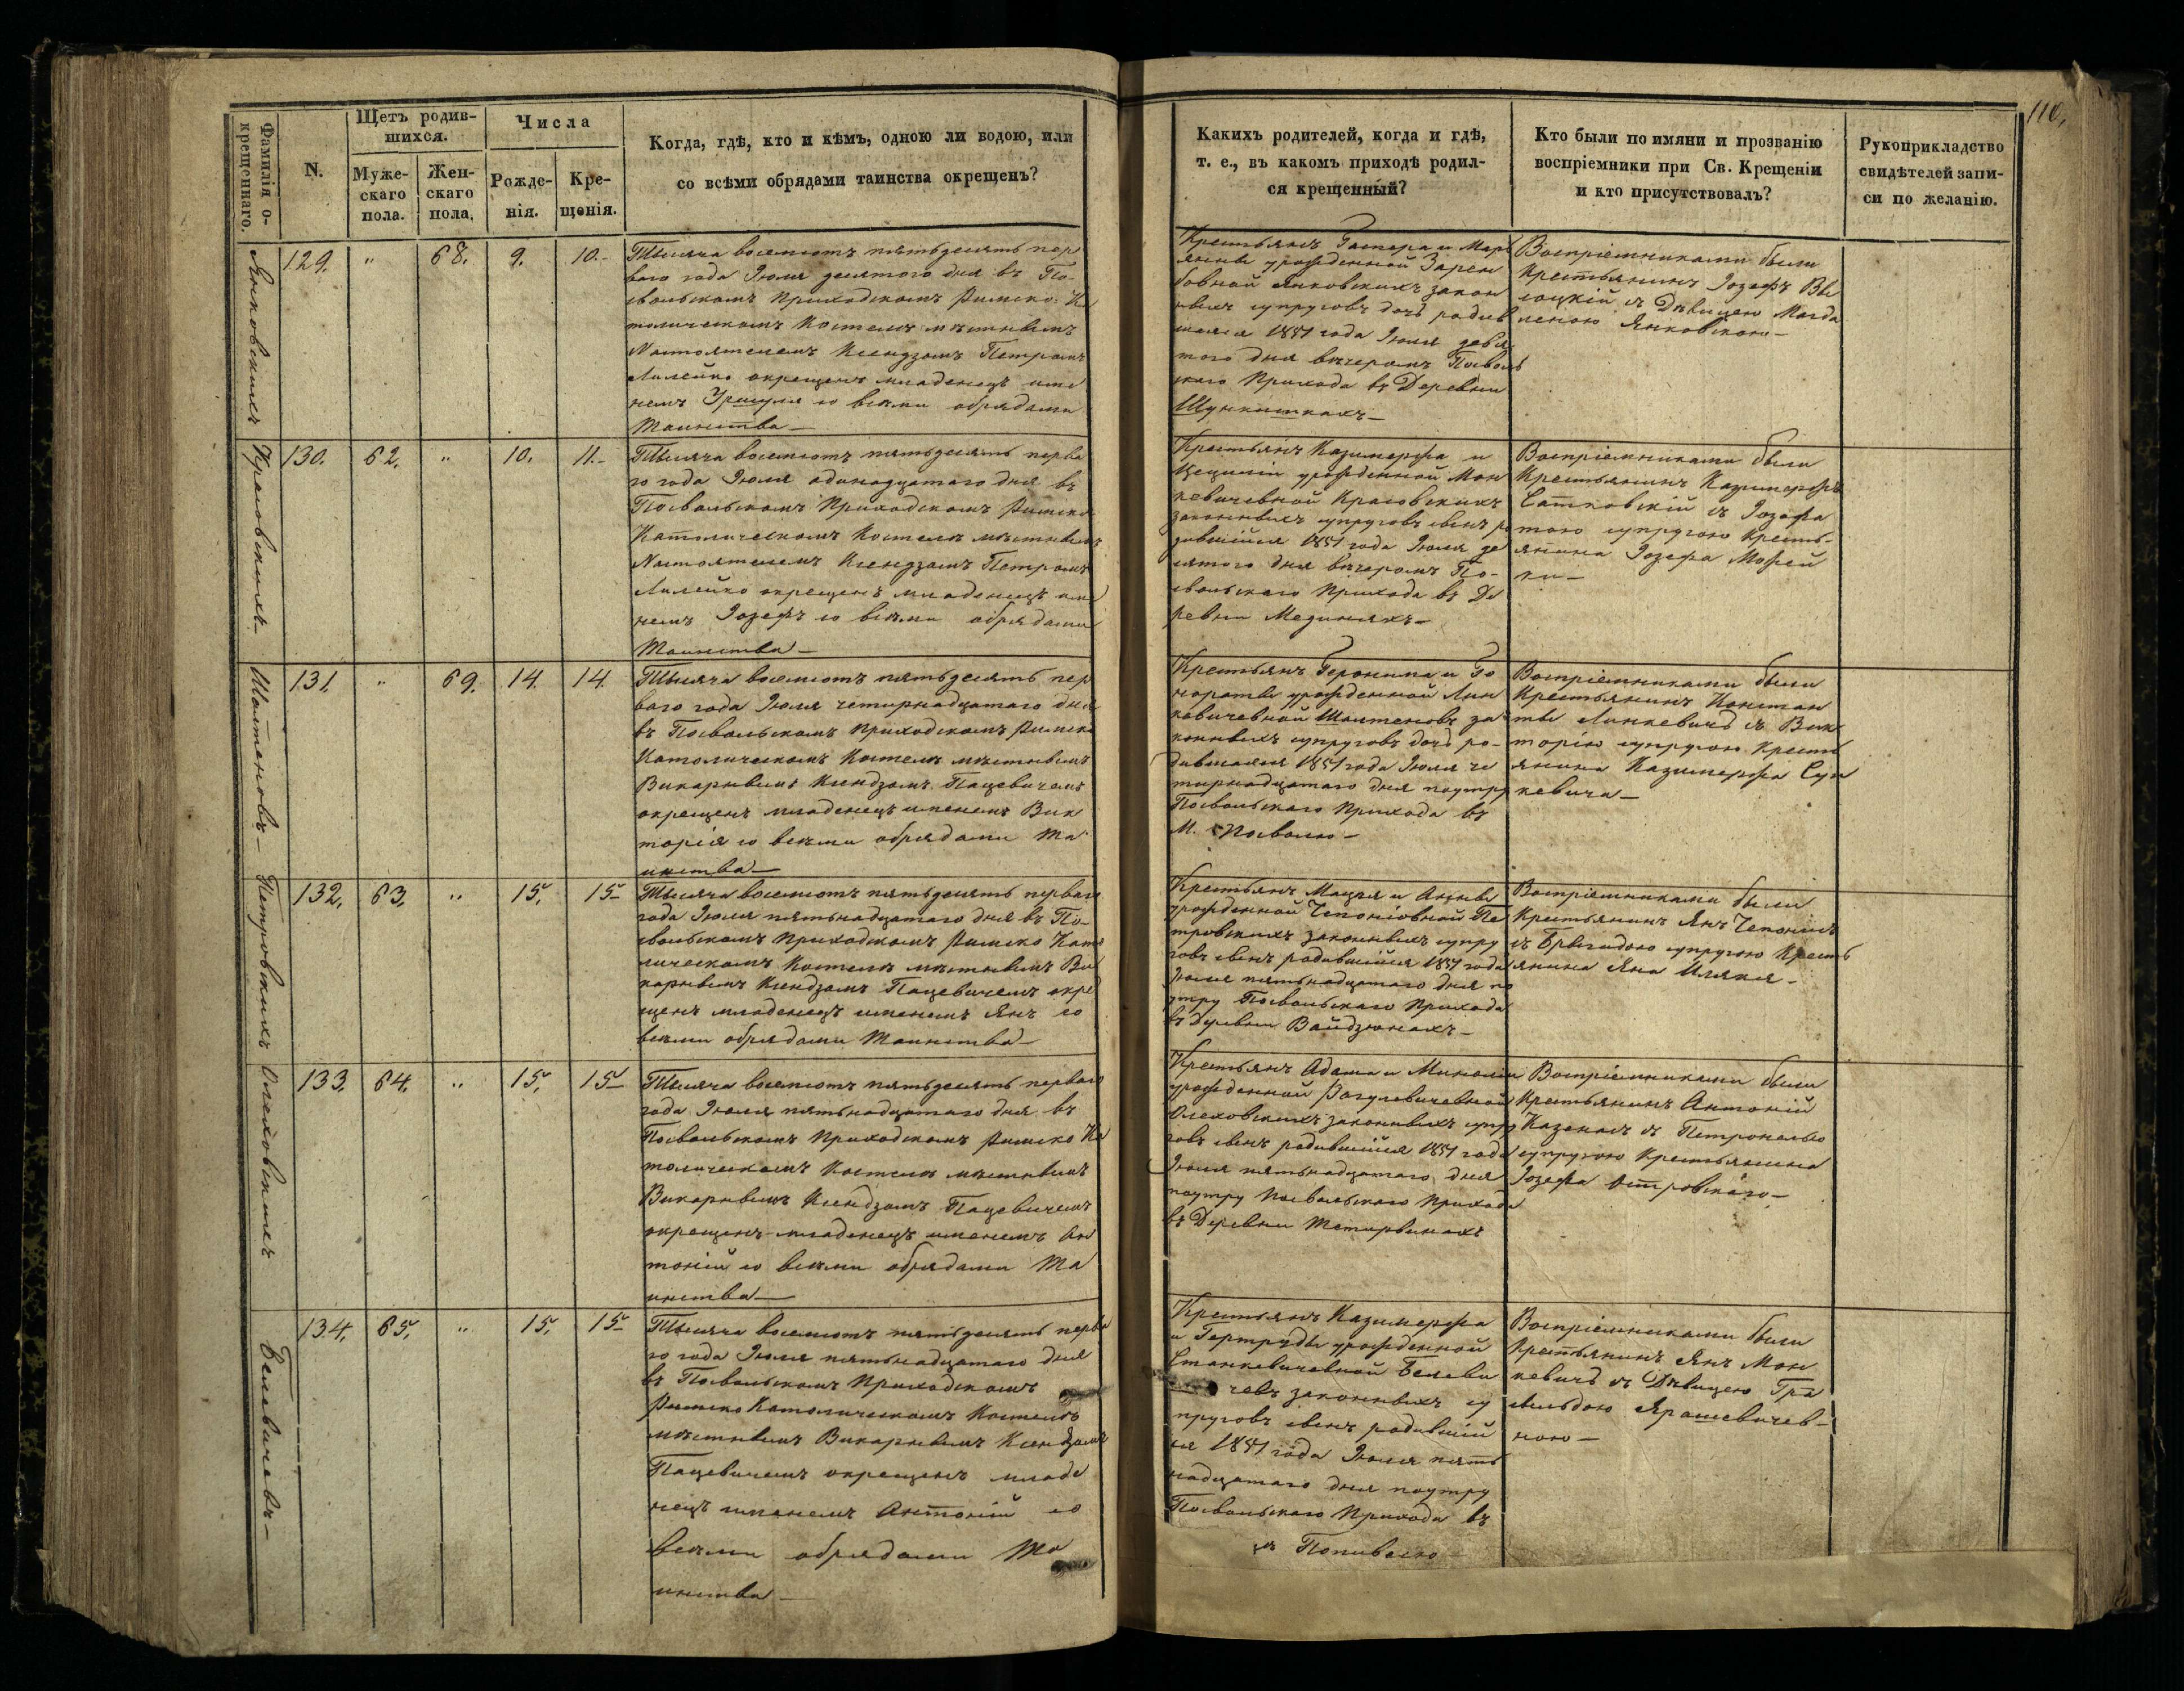 110.
Фамилія о-
крещеннаго.
N.
Щетъ родив-
шихся.
Муже-
скаго
пола.
Жен-
скаго
пола.
Числа
Рожде-
нія.
Кре-
щенія.
Когда, гдѣ, кто и кѣмъ, одною ли водою, или
со всѣми обрядами таинства окрещенъ?
Какихъ родителей, когда и гдѣ,
т. е., въ какомъ приходѣ родил-
ся крещенный?
Кто были по имяни и прозванію
воспріемники при Св. Крещеніи
и кто присутствовалъ?
Рукоприкладство
свидѣтелей запи-
си по желанію.
Янковскихъ
129. " 68. 9. 10.-
Тысяча восемсотъ пятьдесятъ пер
ваго года Іюля десятого дня въ По-
свольскомъ Приходскомъ Римско-Ка
толическомъ Костелѣ мѣстнымъ
Настоятелемъ Ксендзомъ Петромъ
Лилейко окрещенъ младенецъ име
немъ Уршуля со всѣми обрядами
Таинства-
Крестьянъ Гаспера и Марь
янны урожденной Зарем
бовной Янковскихъ закон
ныхъ супруговъ дочь родив
шаяся 1851 года Іюля девя
того дня вечеромъ Посволь
скаго Прихода въ Деревни
Воспріемниками были
Крестьянинъ Іозефъ Вы
соцкій съ Дѣвицею Магда
леною Янковскою-
Красовскихъ-
130. 62. " 10. 11.-
Тысяча восемсотъ пятьдесятъ перва
го года Іюля одинадцатаго дня въ
Посвольскомъ Приходскомъ Римско
Католическомъ Костелѣ мѣстнымъ
Настоятелемъ Ксендзомъ Петромъ
Лилейко окрещенъ младенецъ име
немъ Іозефъ со всѣми обрядами
Таинства-
Крестьянъ Казимерфа и
Цециліи урожденной Мон
кевичевной Красовскихъ
законныхъ супруговъ сынъ ро
дившійся 1851 года Іюля де
сятого дня вечеромъ По-
свольскаго Прихода въ Де
ревни Мединяхъ-
Воспріемниками были
Крестьянинъ Казимерфъ
Сатковскій съ Іозефа
тою супругою Кресть-
янина Іозефа Можей
ки-
Шаптеновъ-
131. " 69. 14. 14.
Тысяча восемсотъ пятьдесятъ пер
ваго года Іюля четырнадцатаго дня
въ Посвольскомъ Приходскомъ Римско
Католическомъ Костелѣ мѣстнымъ
Викарнымъ Ксендзомъ Пацевичемъ
окрещенъ младенецъ именемъ Вик
торія со всѣми обрядами Та
инства-
Крестьянъ Героника и Го
нораты урожденной Лин
кевичевной Шаптеновъ за
конныхъ супруговъ дочь ро-
дившаяся 1851 года Іюля че
тырнадцатаго дня поутру
Посвольскаго Прихода въ
М. Посволю-
Воспріемниками были
Крестьянинъ Констан
ты Линкевичъ съ Вик
торію супругою Кресть
янина Казимерфа Сун
кевича-
Петровскихъ
132. 63. " 15. 15-
Тысяча восемсотъ пятьдесятъ перваго
года Іюля пятьнадцатаго дня въ По-
свольскомъ Приходскомъ Римско Като
лическомъ Костелѣ мѣстнымъ Ви
карнымъ Ксендзомъ Пацевичемъ окре
щенъ младенецъ именемъ Янъ со
всѣми обрядами Таинства-
Крестьянъ Мацея и Анны
урожденной Чепоніовной Пе
тровскихъ законныхъ супру
говъ сынъ родившійся 1851 года
Іюля пятьнадцатаго дня по
утру Посвольскаго Прихода
въ Деревни Вайдзюнахъ-
Воспріемниками были
Крестьянинъ Янъ Чепонисъ
съ Брыгидою супругою Кресть
янина Яна Илякя-
Олеховскихъ
133. 64. " 15. 15-
Тысяча восемсотъ пятьдесятъ перваго
года Іюля пятьнадцатаго дня въ
Посвольскомъ Приходскомъ Римско Ка
толическомъ Костелѣ мѣстнымъ
Викарнымъ Ксендзомъ Пацевичемъ
окрещенъ младенецъ именемъ Ан
тоній со всѣми обрядами Та
инства-
Крестьянъ Адама и
урожденной Рагулевичевной
Олеховскихъ законныхъ супру
говъ сынъ родившійся 1851 года
Іюля пятьнадцатаго дня
поутру Посвольскаго Прихода
въ Деревни Тетирвинахъ
Воспріемниками были
Крестьянинъ Антоній
Казанасъ съ Петронелью
супругою Крестьянина
Іозефа Островскаго-
Белевичевъ-
134. 65. " 15. 15-
Тысяча восемсотъ пятьдесятъ перва
го года Іюля пятьнадцатаго дня
въ Посвольскомъ Приходскомъ
Римско Католическомъ Костелѣ
мѣстнымъ Викарнымъ Ксендзомъ
Пацевичемъ окрещенъ младе
нецъ именемъ Антоній со
всѣми обрядами Та
инства-
Крестьянъ Казимерфа
и Гертруды урожденной
Станкевичевной Белеви
чевъ законныхъ су
пруговъ сынъ родившій
ся 1851 года Іюля пять
надцатаго дня поутру
Посвольскаго Прихода въ
Воспріемниками были
Крестьянинъ Янъ Мон
кевичъ съ Дѣвицею Гра
сильдою Ярошевичев-
ною-